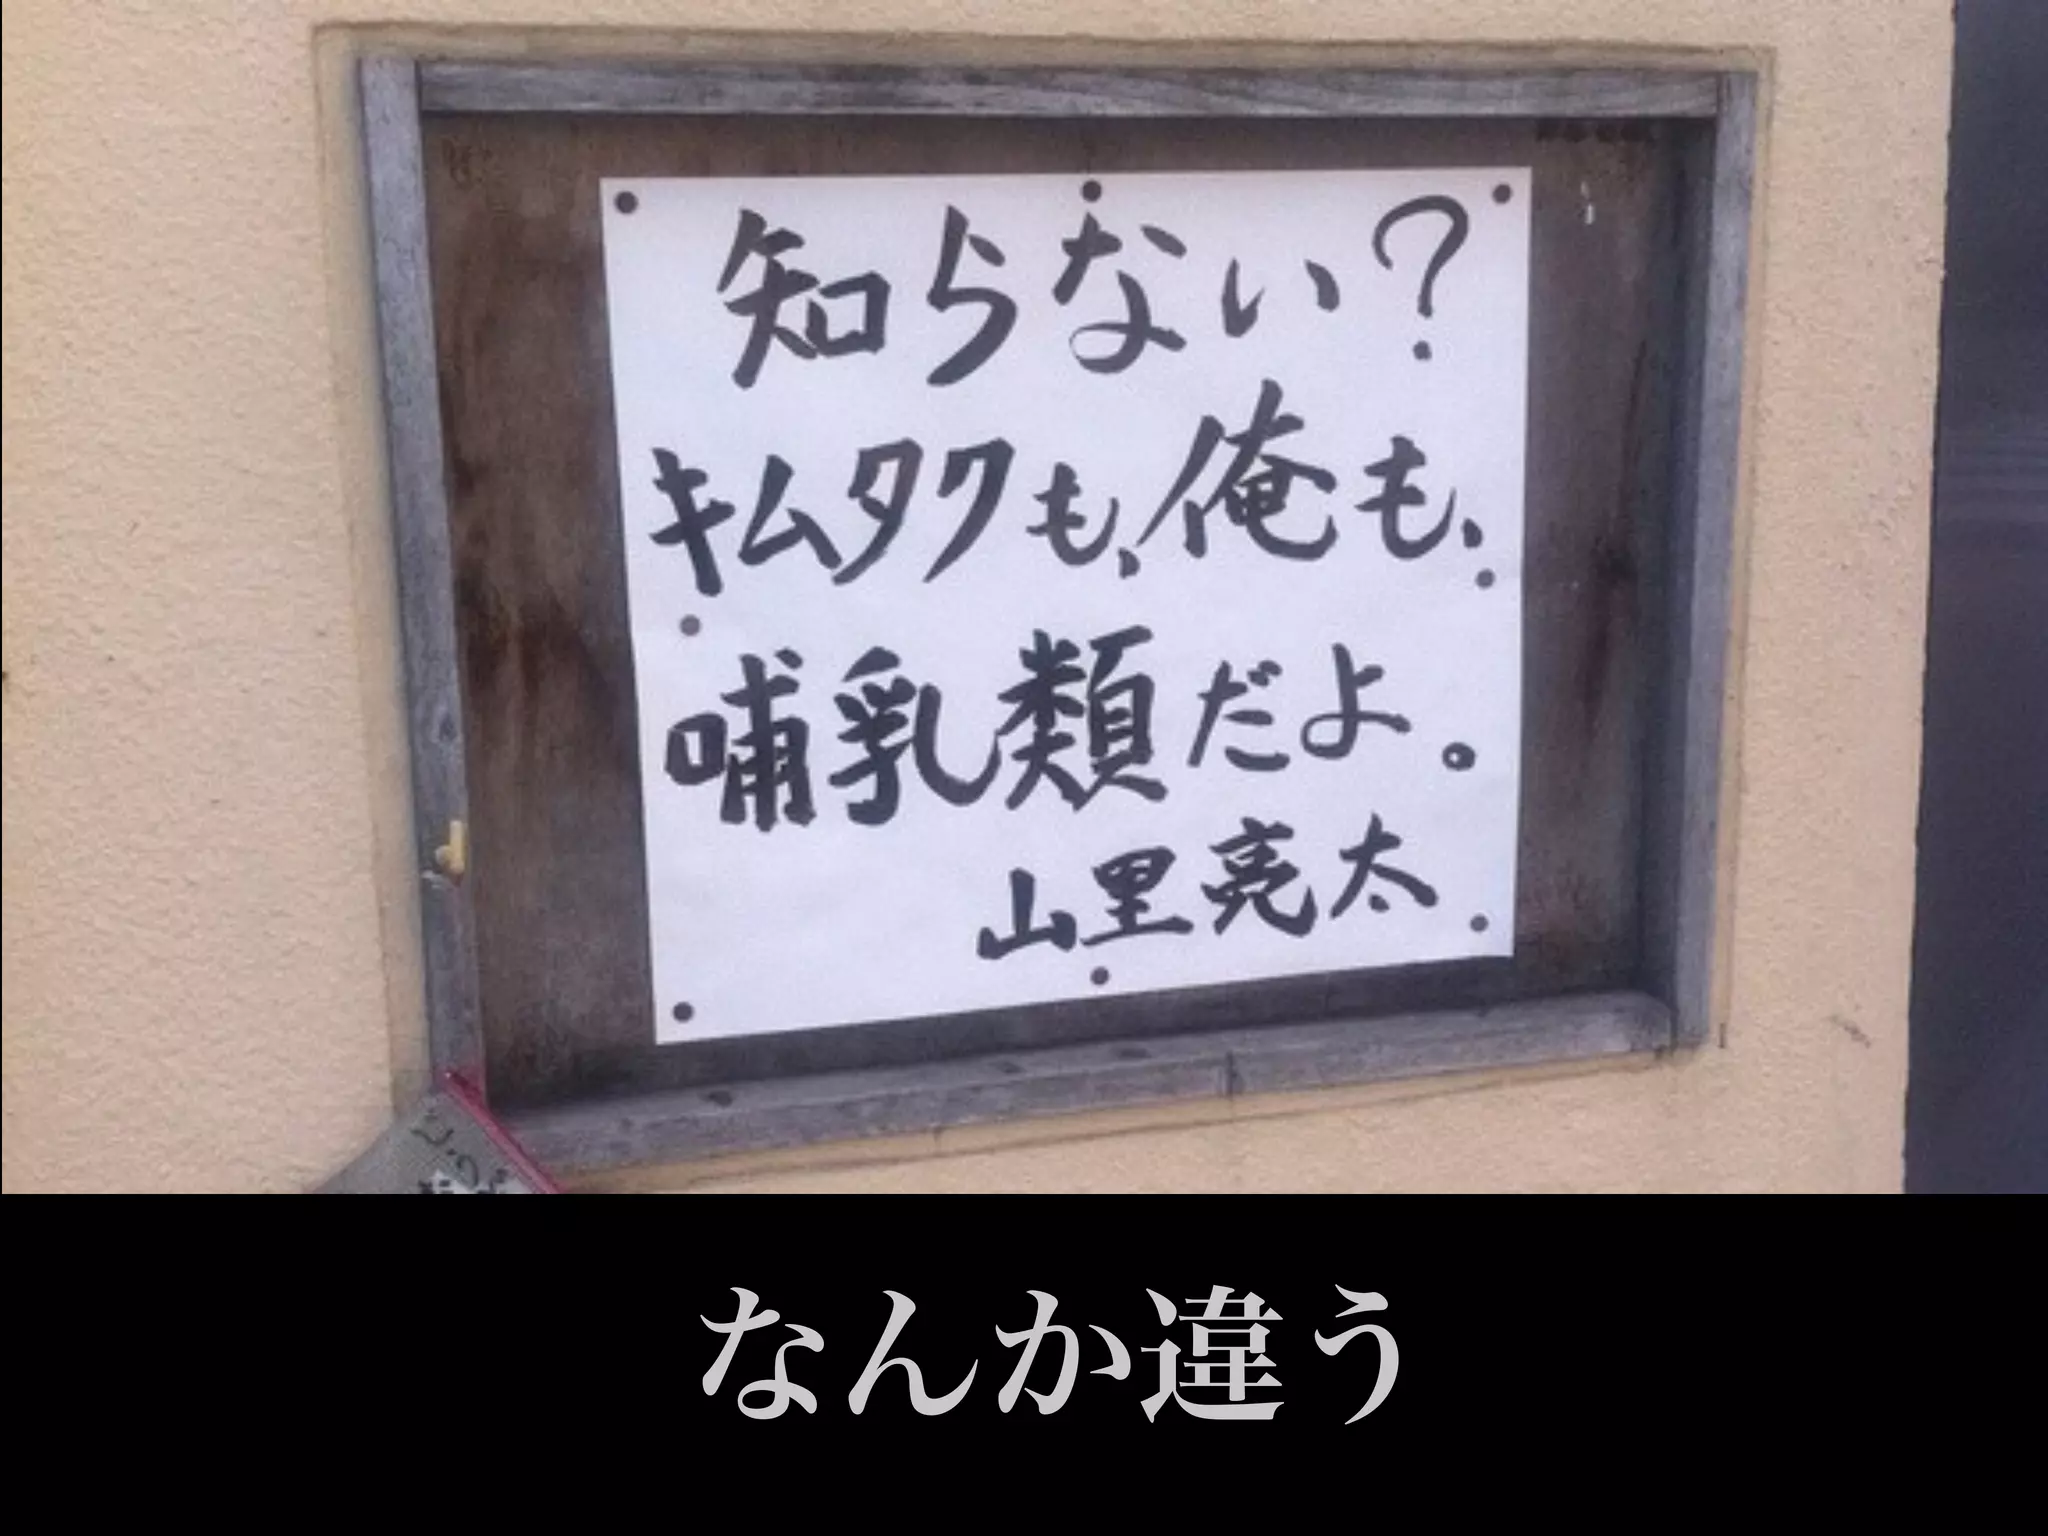 知らない？
キムタクも、俺も、
哺乳類だよ。
山里亮太
なんか違う